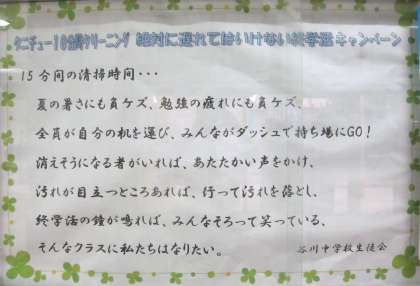 タニチュー10分間クリーニング 絶対に遅れてはいけない終学活キャンペーン
15分間の清掃時間・・・
夏の暑さにも負ケズ、勉強の疲れにも負ケズ、
全員が自分の机を運び、みんながダッシュで持ち場にGO!
消えそうになる者がいれば、あたたかい声をかけ、
汚れが目立つところあれば、行って汚れを落とし、
終学活の鐘が鳴れば、みんなそろって笑っている、
そんなクラスに私たちはなりたい。
谷川中学校生徒会